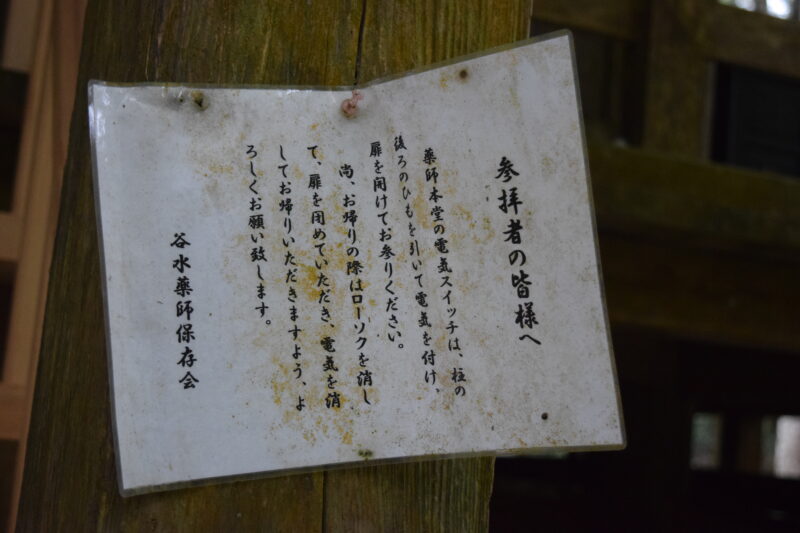 参拝者の皆様へ
薬師本堂の電気スイッチは、柱の
後ろのひもを引いて電気を付け、
扉を開けてお参りください。
尚、お帰りの際はローソクを消し
て、扉を閉めていただき、電気を消
してお帰りいただきますよう、よ
ろしくお願い致します。
谷水薬師保存会